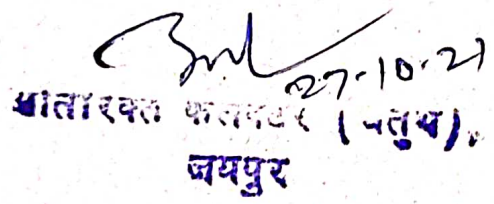 27-10-21
अतिरिक्त कलक्टर (चतुर्थ),
जयपुर